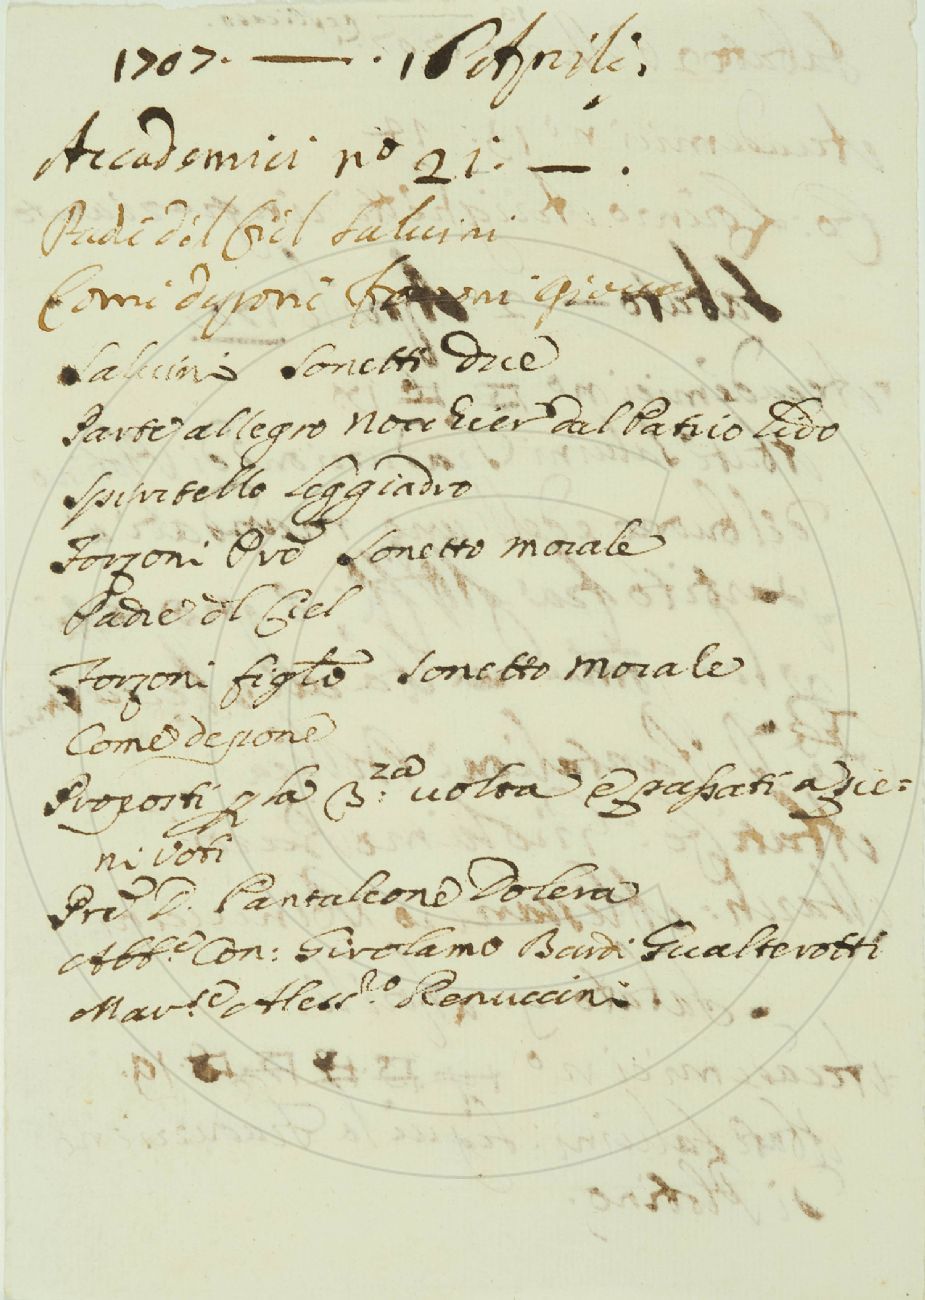 1707. — . 16 Aprile.
Accademici n.º 21. — .
Padre del Ciel Salvini
Salvini Sonetti due
Parte allegro Nocchier dal Patrio Lido
Spiritello leggiadro
Forzoni Pre Sonetto morale
Padre dl Ciel
Forzoni figle Sonetto morale
Come depone
Proposti p la 3.za volta e passati a pie=
ni voti
Pre D. Pantaleone Dolera
Abb.e Con: Girolamo Bardi Gualterotti
Mar.se Aless.o Renuccini